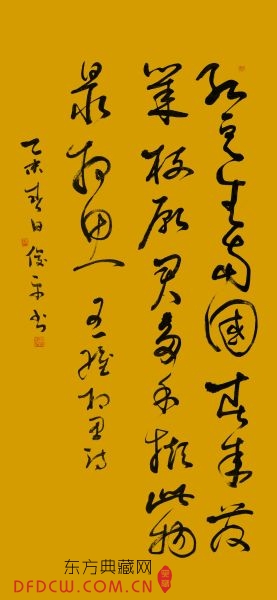 红豆生南國春来发
几枝愿君多采撷此物
最相思 王维相思诗
乙未春日俊平书
东方典藏网
DFDCW.COM.CN